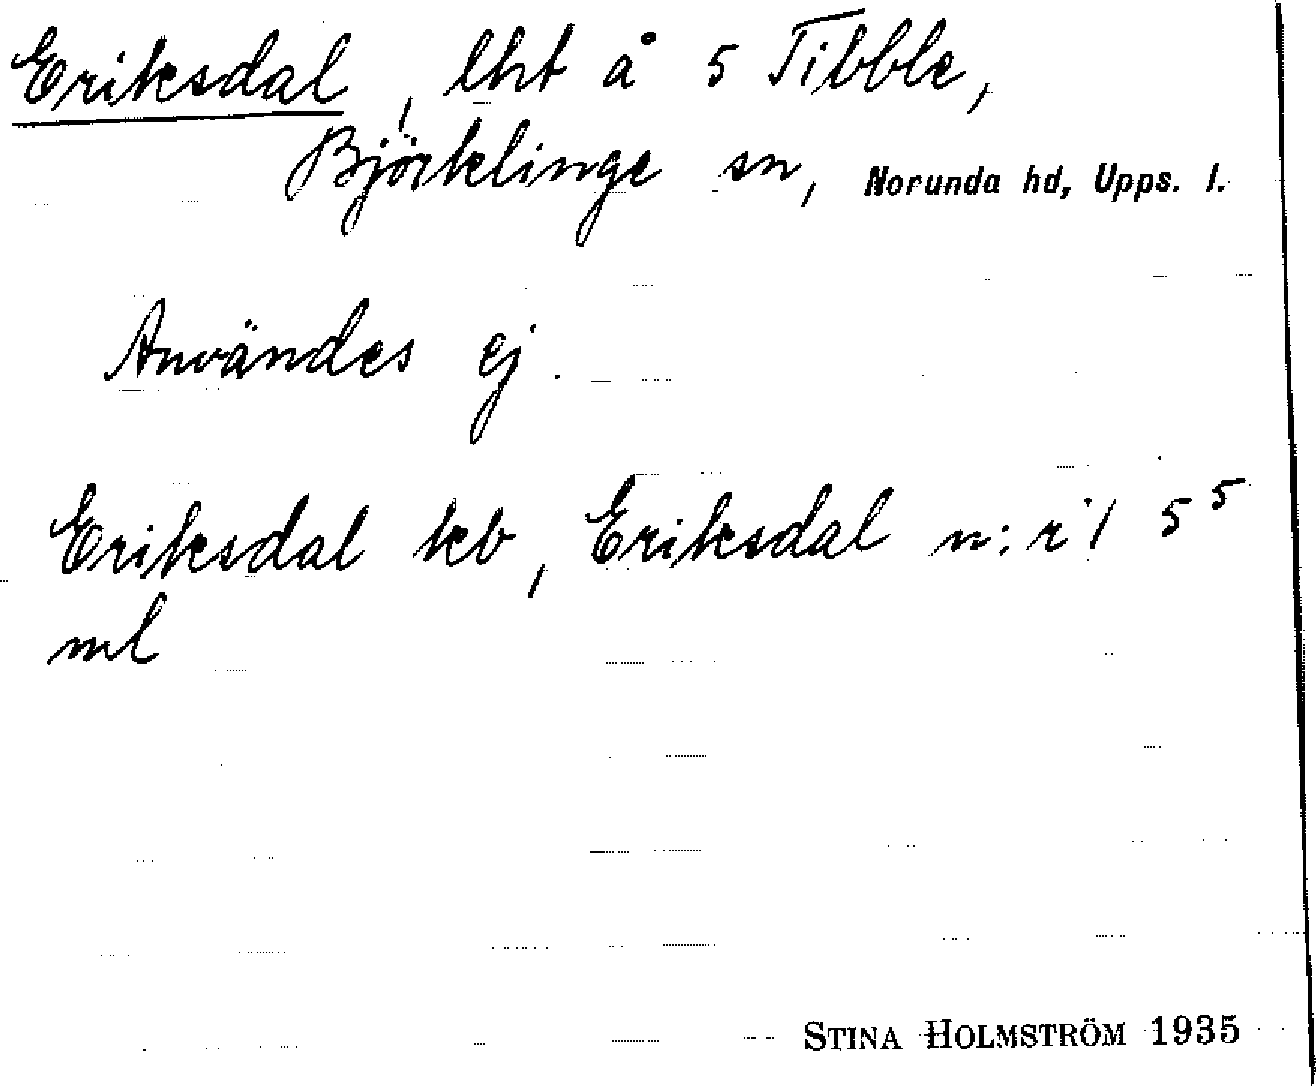 Eriksdal, lht å 5 Tibble,
Björklinge sn, Norunda hd, Upps. l.
Användes ej.
Eriksdal kb, Eriksdal n:r 1 5⁵
ml
STINA HOLMSTRÖM 1935